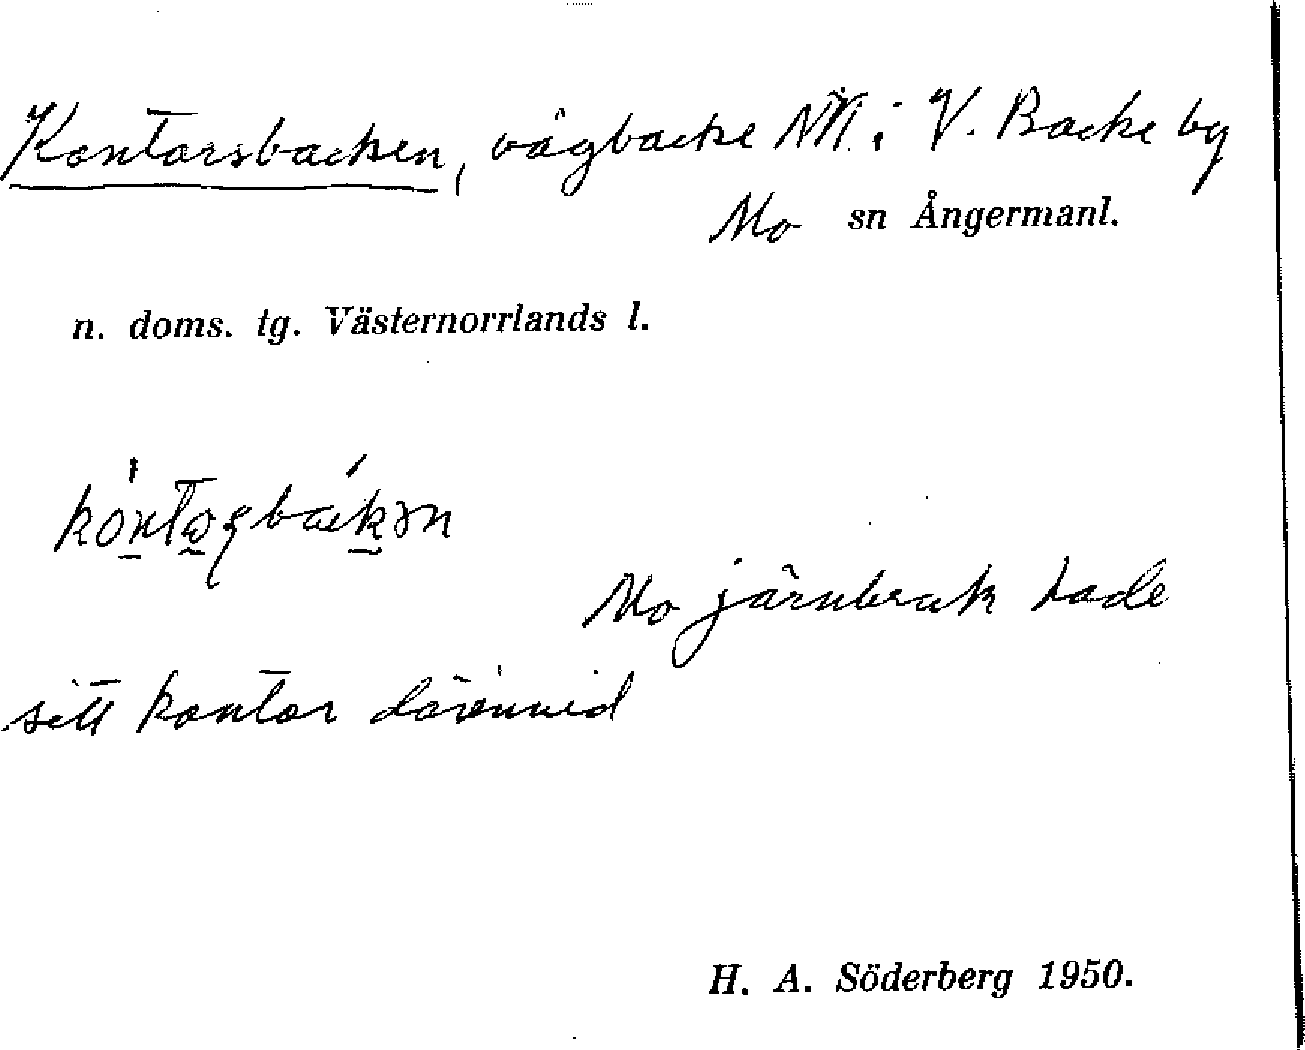 Kontorsbacken, vägbacke i V. Backe by
Mo sn Ångermanl.
n. doms. tg. Västernorrlands l.
Mo järnbruk hade
sitt kontor därinvid
H. A. Söderberg 1950.